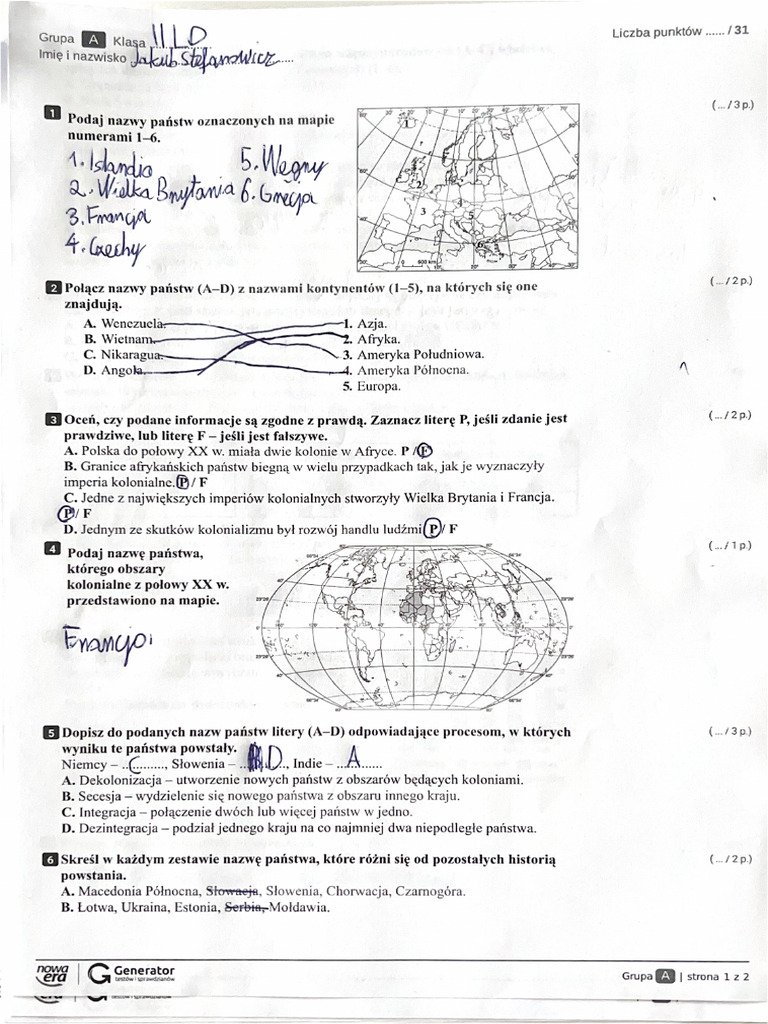 Grupa A Klasa III LD
Liczba punktów ...... / 31
Imię i nazwisko Jakub Stefanowicz
1 Podaj nazwy państw oznaczonych na mapie numerami 1–6.
(... / 3 p.)
1. Islandia
2. Wielka Brytania
3. Francja
4. Czechy
5. Węgry
6. Grecja
2 Połącz nazwy państw (A–D) z nazwami kontynentów (1–5), na których się one
znajdują.
(... / 2 p.)
A. Wenezuela.
B. Wietnam.
C. Nikaragua.
D. Angola.
1. Azja.
2. Afryka.
3. Ameryka Południowa.
4. Ameryka Północna.
5. Europa.
3 Oceń, czy podane informacje są zgodne z prawdą. Zaznacz literę P, jeśli zdanie jest
prawdziwe, lub literę F – jeśli jest fałszywe.
(... / 2 p.)
A. Polska do połowy XX w. miała dwie kolonie w Afryce. P / F
B. Granice afrykańskich państw biegną w wielu przypadkach tak, jak je wyznaczyły
imperia kolonialne. P / F
C. Jedne z największych imperiów kolonialnych stworzyły Wielka Brytania i Francja.
P / F
D. Jednym ze skutków kolonializmu był rozwój handlu ludźmi. P / F
4 Podaj nazwę państwa,
którego obszary
kolonialne z połowy XX w.
przedstawiono na mapie.
(... / 1 p.)
Francja
5 Dopisz do podanych nazw państw litery (A–D) odpowiadające procesom, w których
wyniku te państwa powstały.
(... / 3 p.)
Niemcy – ..C........, Słowenia – ...D..., Indie – ...A.......
A. Dekolonizacja – utworzenie nowych państw z obszarów będących koloniami.
B. Secesja – wydzielenie się nowego państwa z obszaru innego kraju.
C. Integracja – połączenie dwóch lub więcej państw w jedno.
D. Dezintegracja – podział jednego kraju na co najmniej dwa niepodległe państwa.
6 Skreśl w każdym zestawie nazwę państwa, które różni się od pozostałych historią
powstania.
(... / 2 p.)
A. Macedonia Północna, Słowacja, Słowenia, Chorwacja, Czarnogóra.
B. Łotwa, Ukraina, Estonia, Serbia, Mołdawia.
nowa era
Generator
testów i sprawdzianów
Grupa A | strona 1 z 2